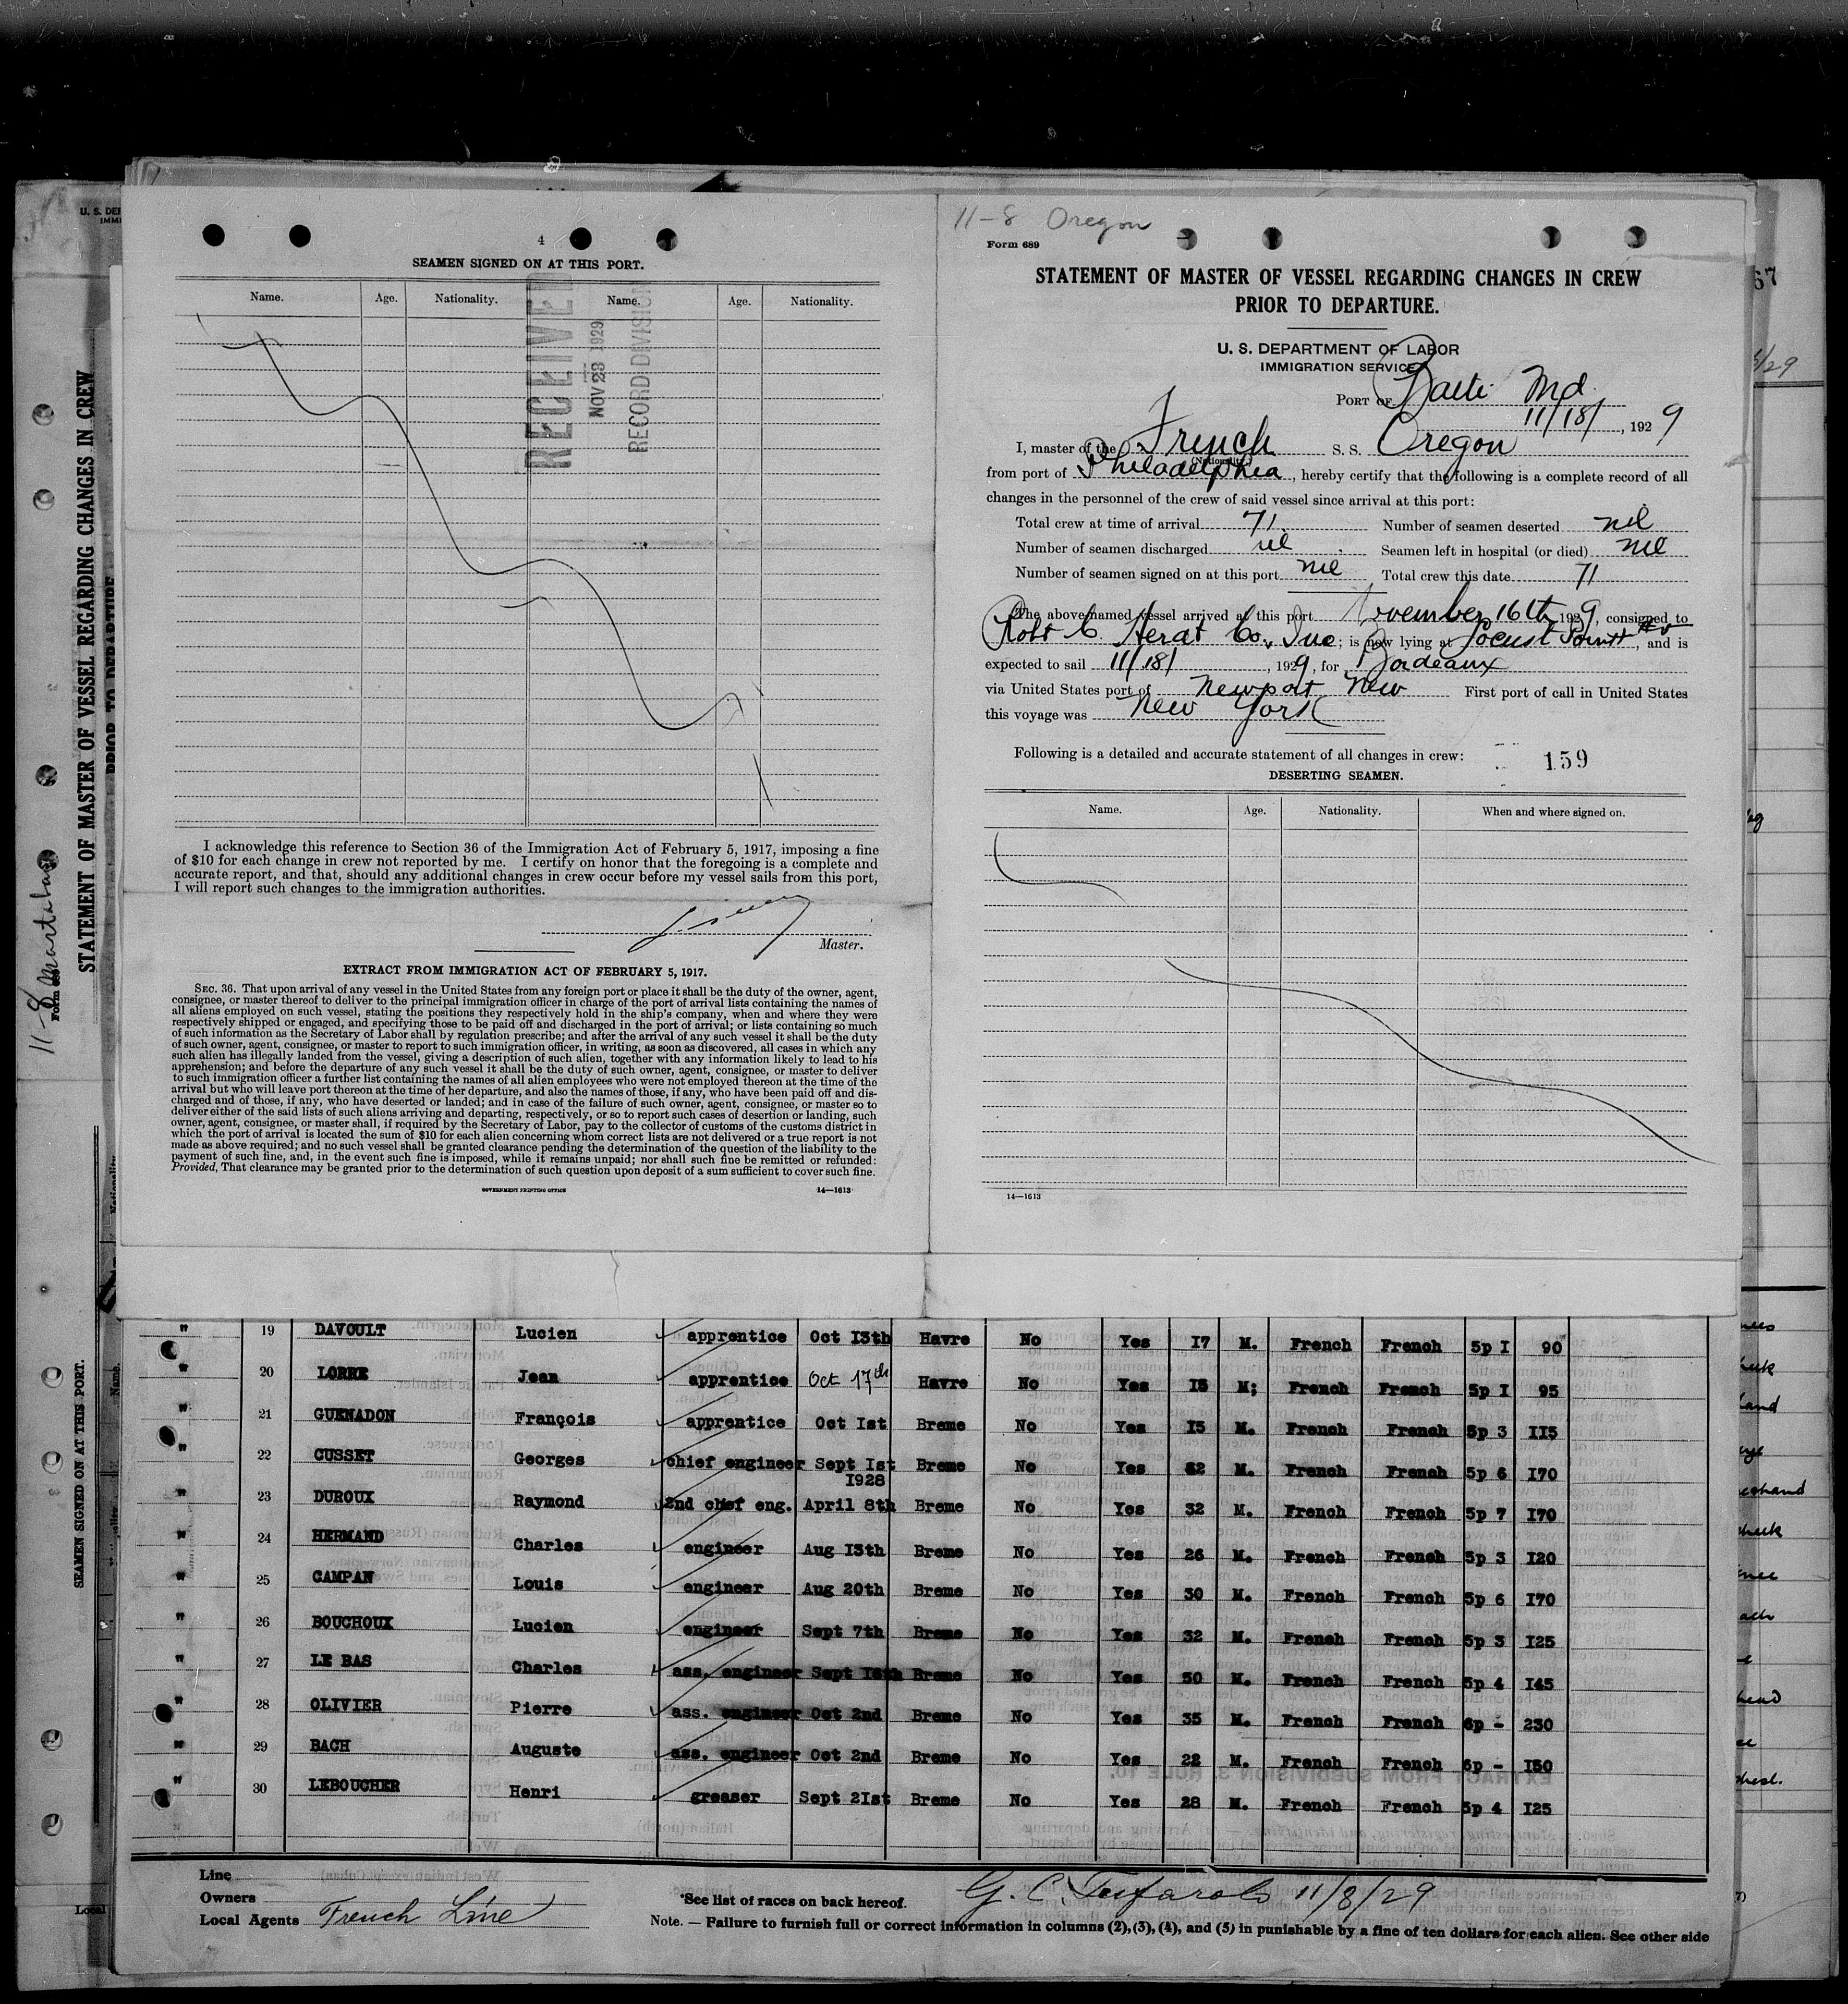 4
SEAMEN SIGNED ON AT THIS PORT.
Name. Age. Nationality. Name. Age. Nationality.
RECEIVED
NOV 23 1929
RECORD DIVISION
I acknowledge this reference to Section 36 of the Immigration Act of February 5, 1917, imposing a fine
of $10 for each change in crew not reported by me. I certify on honor that the foregoing is a complete and
accurate report, and that, should any additional changes in crew occur before my vessel sails from this port,
I will report such changes to the immigration authorities.
Master.
EXTRACT FROM IMMIGRATION ACT OF FEBRUARY 5, 1917.
SEC. 36. That upon arrival of any vessel in the United States from any foreign port or place it shall be the duty of the owner, agent,
consignee, or master thereof to deliver to the principal immigration officer in charge of the port of arrival lists containing the names of
all aliens employed on such vessel, stating the positions they respectively hold in the ship's company, when and where they were
respectively shipped or engaged, and specifying those to be paid off and discharged in the port of arrival; or lists containing so much
of such information as the Secretary of Labor shall by regulation prescribe; and after the arrival of any such vessel it shall be the duty
of such owner, agent, consignee, or master to report to such immigration officer, in writing, as soon as discovered, all cases in which any
such alien has illegally landed from the vessel, giving a description of such alien, together with any information likely to lead to his
apprehension; and before the departure of any such vessel it shall be the duty of such owner, agent, consignee, or master to deliver
to such immigration officer a further list containing the names of all alien employees who were not employed thereon at the time of the
arrival but who will leave port thereon at the time of her departure, and also the names of those, if any, who have been paid off and dis-
charged and of those, if any, who have deserted or landed; and in case of the failure of such owner, agent, consignee, or master so to
deliver either of the said lists of such aliens arriving and departing, respectively, or so to report such cases of desertion or landing, such
owner, agent, consignee, or master shall, if required by the Secretary of Labor, pay to the collector of customs of the customs district in
which the port of arrival is located the sum of $10 for each alien concerning whom correct lists are not delivered or a true report is not
made as above required; and no such vessel shall be granted clearance pending the determination of the question of the liability to the
payment of such fine, and, in the event such fine is imposed, while it remains unpaid; nor shall such fine be remitted or refunded:
Provided, That clearance may be granted prior to the determination of such question upon deposit of a sum sufficient to cover such fine.
GOVERNMENT PRINTING OFFICE 14—1613
11-8 Oregon
Form 689
STATEMENT OF MASTER OF VESSEL REGARDING CHANGES IN CREW
PRIOR TO DEPARTURE.
U. S. DEPARTMENT OF LABOR
IMMIGRATION SERVICE
PORT OF Balto Md
11/18/, 1929
I, master of the French S. S. Oregon
(Nationality)
from port of Philadelphia, hereby certify that the following is a complete record of all
changes in the personnel of the crew of said vessel since arrival at this port:
Total crew at time of arrival 71. Number of seamen deserted nil
Number of seamen discharged nil Seamen left in hospital (or died) nil
Number of seamen signed on at this port nil Total crew this date 71
The above-named vessel arrived at this port November 16th, 1929, consigned to
Robt C. Herd Co., Inc; is now lying at Locust Point, and is
expected to sail 11/18/, 1929, for Bordeaux
via United States port of Newport New First port of call in United States
this voyage was New York
Following is a detailed and accurate statement of all changes in crew: 159
DESERTING SEAMEN.
Name. Age. Nationality. When and where signed on.
14—1613
" 19 DAVOULT Lucien apprentice Oct 13th Havre No Yes 17 M. French French 5p 1 90
" 20 LORRE Jean apprentice Oct 17th Havre No Yes 15 M; French French 5p 1 95
" 21 GUENADON François apprentice Oct 1st Breme No Yes 15 M. French French 5p 3 115
" 22 CUSSET Georges chief engineer Sept 1st Breme No Yes 52 M. French French 5p 6 170
1928
" 23 DUROUX Raymond 2nd chief eng. April 8th Breme No Yes 32 M. French French 5p 7 170
" 24 HERMAND Charles engineer Aug 13th Breme No Yes 26 M. French French 5p 3 120
" 25 CAMPAN Louis engineer Aug 20th Breme No Yes 30 M. French French 5p 6 170
" 26 BOUCHOUX Lucien engineer Sept 7th Breme No Yes 32 M. French French 5p 3 125
" 27 LE BAS Charles ass. engineer Sept 18th Breme No Yes 50 M. French French 5p 4 145
" 28 OLIVIER Pierre ass. engineer Oct 2nd Breme No Yes 35 M. French French 6p - 230
" 29 BACH Auguste ass. engineer Oct 2nd Breme No Yes 22 M. French French 6p - 150
" 30 LEBOUCHER Henri greaser Sept 21st Breme No Yes 28 M. French French 5p 4 125
Line
Owners
Local Agents French Line
*See list of races on back hereof.
G. C. 11/8/29
Note. — Failure to furnish full or correct information in columns (2),(3),(4), and (5) in punishable by a fine of ten dollars for each alien. See other side
STATEMENT OF MASTER OF VESSEL REGARDING CHANGES IN CREW
PRIOR TO DEPARTURE
SEAMEN SIGNED ON AT THIS PORT.